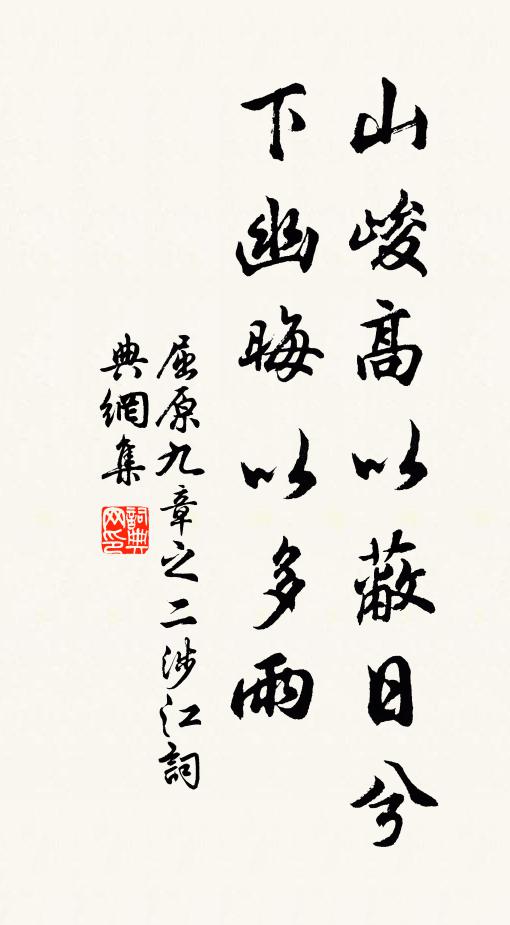 山峻高以蔽日兮
下幽晦以多雨
屈原九章之二涉江詞
典網集
詞典网印